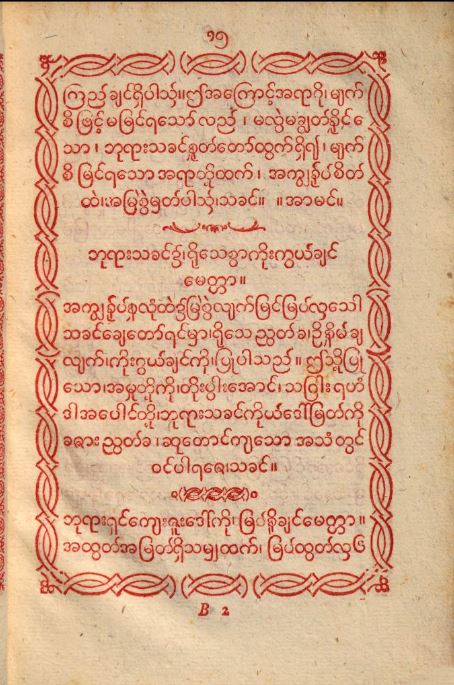 ၁၅
ကြည်ချင်ရှိပါသ၏။ဤအကြောင့်အရာဂို၊မျက်
စိဖြင့်မမြင်ရသော်လည်၊ မလွဲမချွတ်နှိုင်ငေ
သာ၊ ဘုရားသခင်နှုတ်တော်ထွက်ရှိ၍၊ မျက်
စိမြင်ရသောအရာဘို့ထက်၊ အကျွန်ုပ်စိတ်
ထဲ၊အမြဲစွဲမှတ်ပါသ၏၊သခင်။ ။အာမင်။
ဘုရားသခင်၌၊ရိုသေစွာကိုးကွယ်ချင်
မေတ္တာ။
အကျွန်ုပ်နှလုံထဲ၌မြဲစွဲလျက်မြင်မြပ်လှသော
သခင်ချေတော်ရင်မှာ၊ရိုသေညွတ်ခ၊ဦနှိမ်ချ
လျက်၊ကိုးကွယ်ချင်ကို၊ပြုပါသည်။ ဤသို့ပြု
သော၊အမှုဘို့ကို၊တိုးပွါးအောင်၊သင်္ဂြါးရဟံ
ဒါအပေါင်တို့၊ဘုရားသခင်ကိုယ်ဒေါ်မြတ်ကို
ခစားညွတ်ခ၊ဆုတောင်ကျသောအသံတွင်
ဝင်ပါရစေ၊သခင်။
ဘုရားရှင်ကျေးဇူးဒေါ်ကို၊မြပ်နှိချင်မေတ္တာ။
အထွတ်အမြတ်ရှိသမျှထက်၊ မြပ်ထွတ်လှစေ
B 2